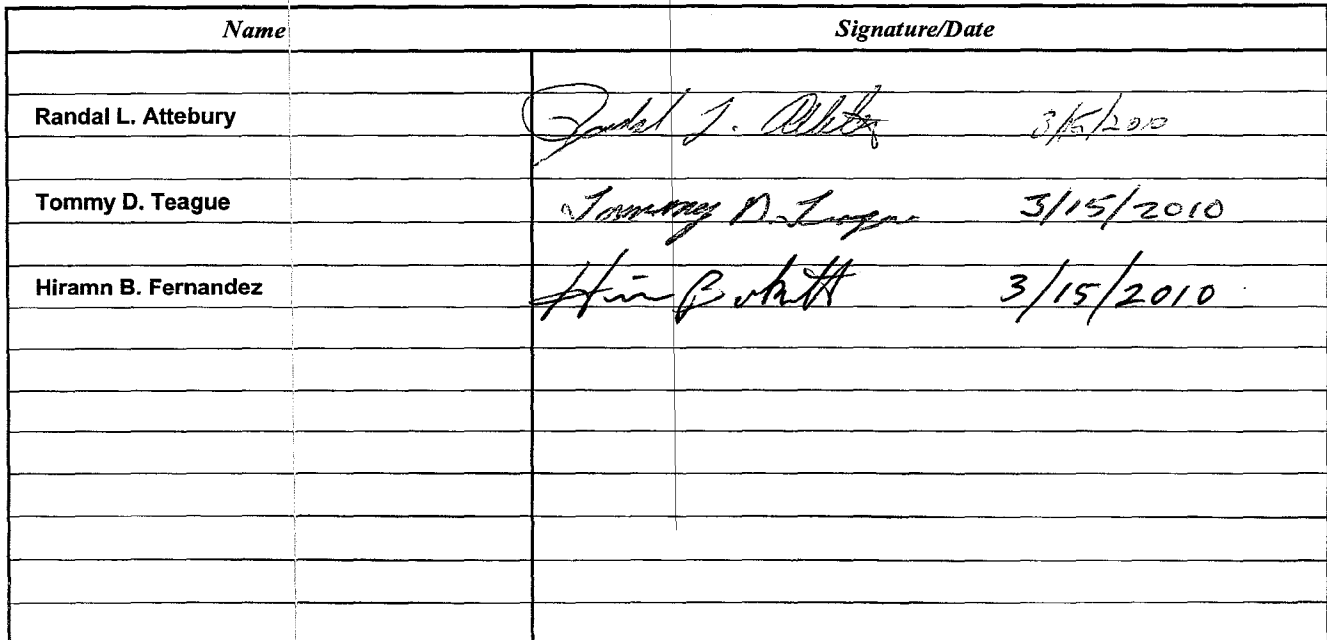 Name Signature/Date
Randal L. Attebury Randal L. 3/15/2010
Tommy D. Teague Tommy D. Teague 3/15/2010
Hiramn B. Fernandez 3/15/2010